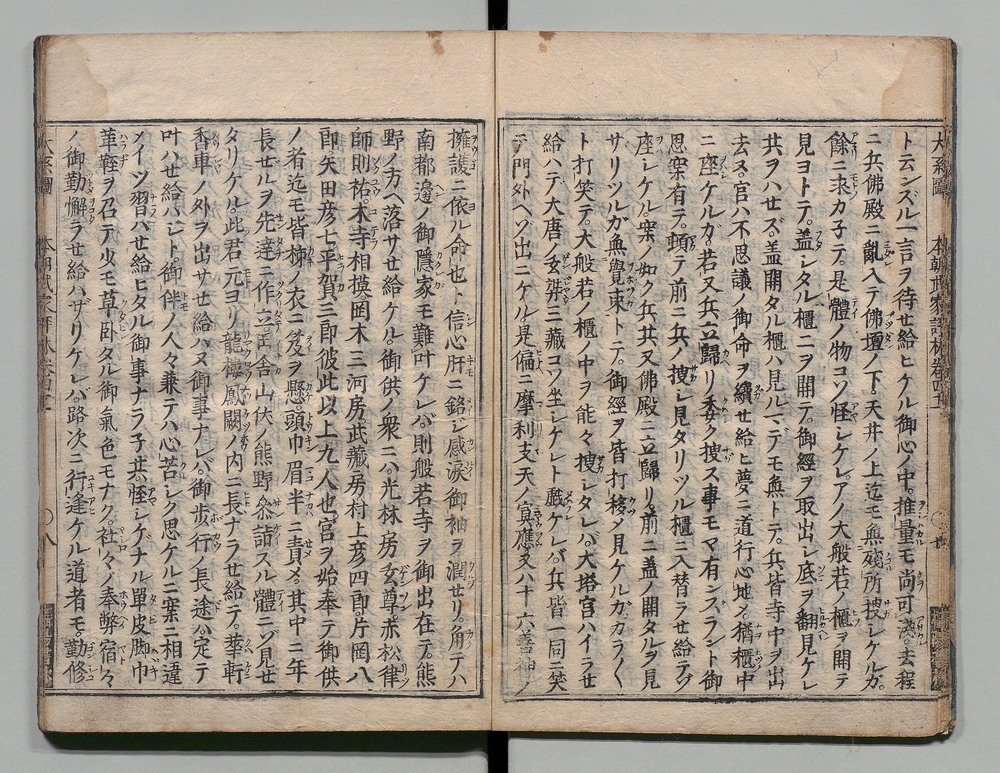 ト云ンズル一言ヲ待セ給ヒケル御心ノ中推量モ尚可淺去程
ニ兵佛殿ニ亂入テ佛壇ノ下天井ノ上迄モ無殘所捜シケルガ
餘ニ求カ子テ是體ノ物コソ怪シケレアノ大般若ノ櫃ヲ開テ
見ヨトテ蓋シタル櫃二ヲ開テ御經ヲ取出シ底ヲ翻見ケレ
共ヲハセズ蓋開タル櫃ハ見ルマデモ無トテ兵皆寺中ヲ出
去ヌ宮ハ不思議ノ御命ヲ續セ給ヒ夢ニ道行心地メ猶櫃中
ニ座ケルガ若又兵立歸リ委ク捜ス事モヤ有ンズラント御
思案有テ頓テ前ニ兵ノ捜シ見タリツル櫃ニ入替ラセ給テゾ
座シケル案ノ如ク兵共又佛殿ニ立歸リ前ニ蓋ノ開タルヲ見
サリツルガ無覺束トテ御經ヲ皆打移メ見ケルガカラ〱
ト打笑テ大般若ノ櫃ノ中ヲ能々捜シタレバ大塔宮ハイラセ
給ハデ大唐ノ玄奘三藏コソ坐シケレト戯ケレバ兵皆一同ニ笑
テ門外ヘゾ出ニケル是偏ニ摩利支天ノ冥應又ハ十六善神ノ
擁護ニ依ル命也ト信心肝ニ銘シ感涙御袖ヲ潤セリ角テハ
南都邊ノ御隱家モ難叶ケレバ則般若寺ヲ御出在テ熊
野ノ方ヘ落サセ給ケル御供ノ衆ニハ光林房玄尊赤松律
師則祐木寺相摸岡本三河房武藏房村上彦四郎片岡八
郎矢田彦七平賀三郎彼此以上九人也宮ヲ始奉テ御供
ノ者迄モ皆柿ノ衣ニ笈ヲ懸頭巾眉半ニ責メ其中ニ年
長セルヲ先達ニ作立田舎山伏ノ熊野參詣スル體ニゾ見セ
タリケル此君元ヨリ龍樓鳳闕ノ内ニ長ナラセ給テ華軒
香車ノ外ヲ出サセ給ハヌ御事ナレバ御歩行ノ長途ハ定テ
叶ハセ給ハジト御伴ノ人々兼テハ心苦シク思ケルニ案ニ相違
メイツ習ハセ給ヒタル御事ナラ子共怪シケナル單皮脚巾
草鞋ヲ召テ少モ草臥タル御氣色モナク社々ノ奉弊宿々
ノ御勤懈ラセ給ハザリケレバ路次ニ行逢ケル道者モ勤修